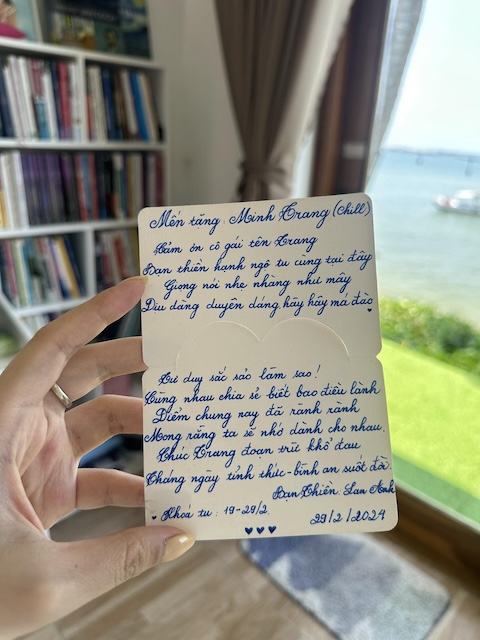 Mến tặng: Minh Trang (Chill)
Cảm ơn cô gái tên Trang
Bạn thiền hạnh ngộ tu cùng tại đây
Giọng nói nhẹ nhàng như mây
Dịu dàng duyên dáng hây hây má đào
Tư duy sắc sảo làm sao!
Cùng nhau chia sẻ biết bao điều lành
Điểm chung nay đã rành rành
Mong rằng ta sẽ nhớ dành cho nhau.
Chúc Trang đoạn trừ khổ đau
Tháng ngày tỉnh thức - bình an suốt đời.
Bạn Thiền: Lan Anh
Khoá tu: 19-29/2.
29/2/2024